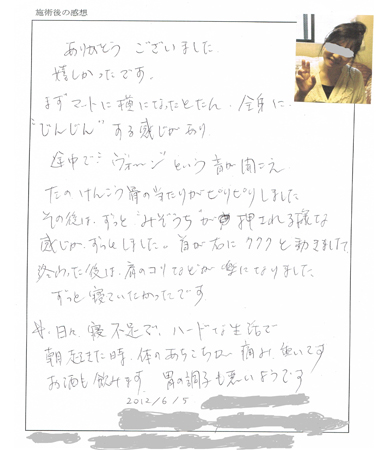 施術後の感想
ありがとう ございました
嬉しかったです。
まずマートに横になったとたん、全身に
"じんじん"する感じがあり
途中で "ヴォーン" という音が聞こえ
左のけんこう骨の当たりがピリピリしました
その後は、ずっと"みぞうち"が押される様な
感じが、ずっとしました。首が右にククッと動きました
終わった後は、肩のコリなどが楽になりました
ずっと寝ていたかったです
日々、寝不足で、ハードな生活で
朝起きた時、体のあちこちが痛み、
お酒も飲みます 胃の調子も悪いようです
2012/6/5